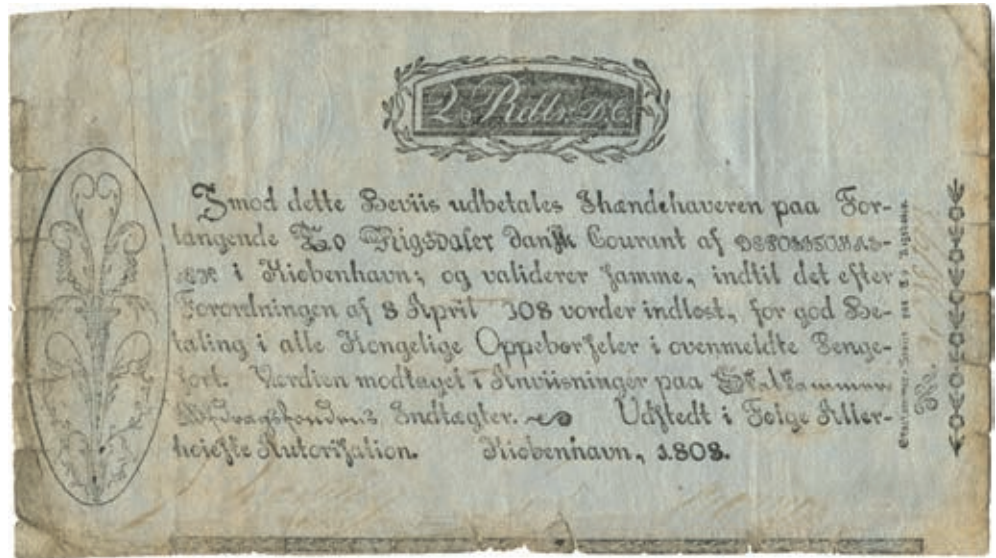 2 Rdlr. D.C.
Imod dette Beviis udbetales Ihændehaveren paa For-
langende To Rigsdaler dansk Courant af DEPOSITOKAS-
SEN i Kiøbenhavn; og validerer samme, indtil det efter
Forordningen af 8 April 108 vorder indløst, for god Be-
taling i alle Kongelige Oppebørseler i ovenmeldte Penge-
sort. Værdien modtaget i Anviisninger paa Skatkammer
Afdragsfondens Indtægter. Udstedt i Følge Aller-
høieste Autorisation. Kiøbenhavn, 1808.
No.